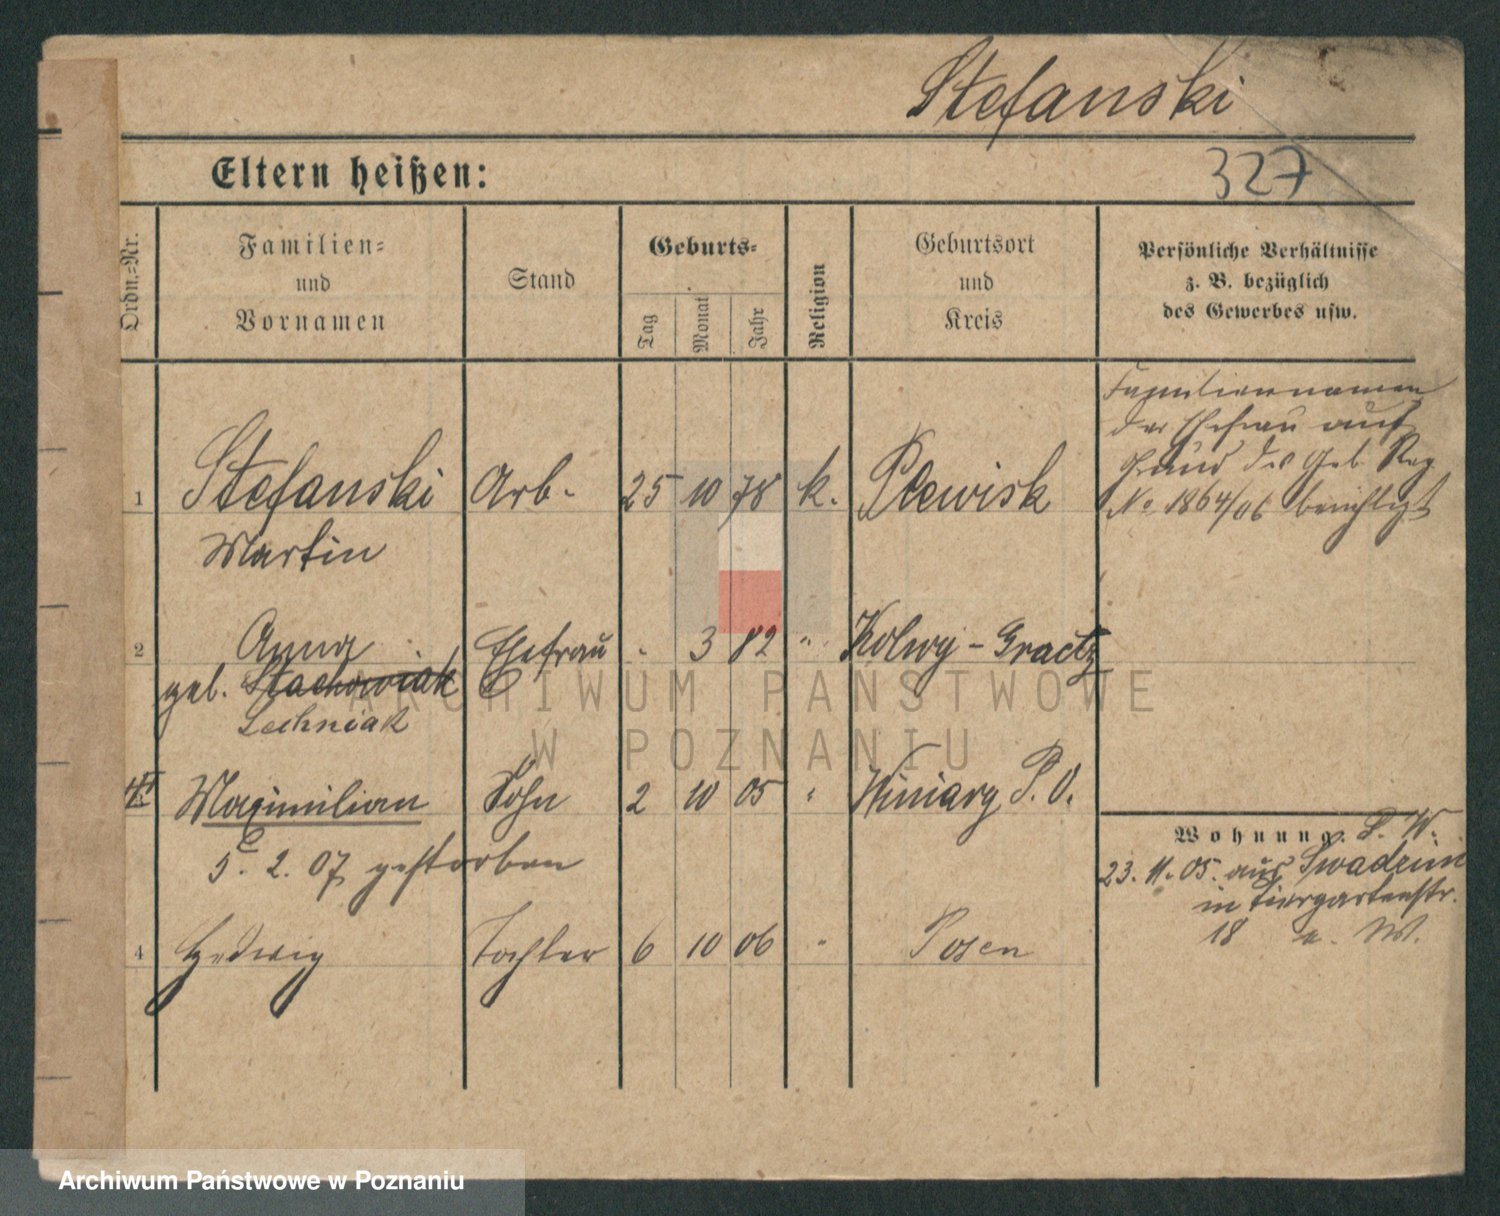 Stefanski
327
Eltern heißen:
Ordn.-Nr.
Familien-
und
Vornamen
Stand
Geburts-
Tag
Monat
Jahr
Religion
Geburtsort
und
Kreis
Persönliche Verhältnisse
z. B. bezüglich
des Gewerbes usw.
Familiennamen
der Ehefrau auf
Grund des Geb. Reg.
No 1864/06 berichtigt
1 Stefanski Arb. 25 10 78 k. Plewisk
Martin
2 Anna Ehefrau - 3 82 " Kolwy - Graetz
geb. Stachowiak
Lechniak
Maximilian Sohn 2 10 05 " Winiary P. O.
5. 2. 07 gestorben
4 Hedwig Tochter 6 10 06 " Posen
Wohnung. P. W.
23. 11. 05. aus Swadzim
in Tiergartenstr.
18 a. W.
ARCHIWUM PAŃSTWOWE
W POZNANIU
Archiwum Państwowe w Poznaniu